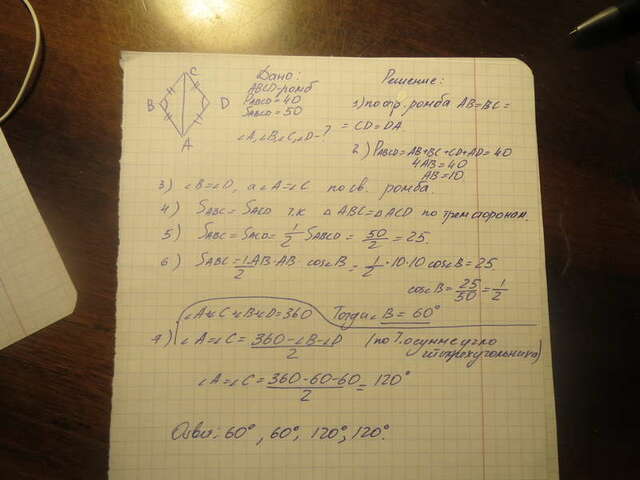 C
B
D
A
Дано:
ABCD-ромб
PABCD = 40
SABCD = 50
∠A,∠B,∠C,∠D-?
Решение:
1) по опр. ромба AB=BC=
= CD=DA
2) PABCD=AB+BC+CD+AD=40
4AB=40
AB=10
3) ∠B=∠D, а ∠A=∠C по св. ромба.
4) SABC=SACD т.к △ABC=△ACD по трем сторонам.
5) SABC=SACD= 1/2 SABCD = 50/2 = 25.
6) SABC= 1/2 AB·AB· cos∠B = 1/2 ·10·10 cos∠B = 25
cos∠B = 25/50 = 1/2
∠A+∠C+∠B+∠D=360 Тогда ∠B = 60°
7) ∠A=∠C= 360-∠B-∠D/2 (по Т. о сумме угло
четырехугольника)
∠A=∠C= 360-60-60/2 = 120°
Ответ: 60°, 60°, 120°, 120°.